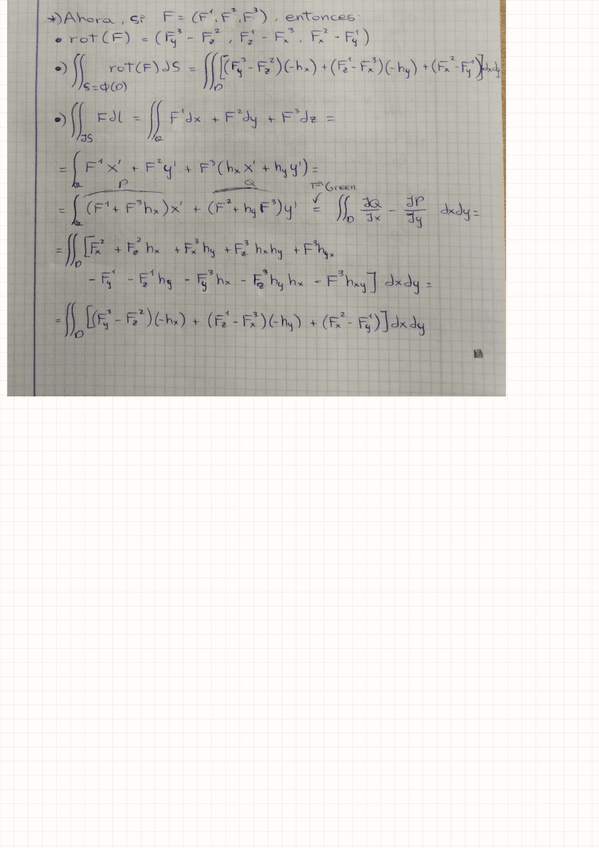 *) Ahora, si F = (F¹, F², F³), entonces:
• rot(F) = (F³y - F²z, F¹z - F³x, F²x - F¹y)
•) ∬_{S=Φ(D)} rot(F) dS = ∬_D [(F³y - F²z)(-hx) + (F¹z - F³x)(-hy) + (F²x - F¹y)] dxdy
•) ∬_{∂S} F dl = ∬ F¹dx + F²dy + F³dz =
= ∫ F¹x' + F²y' + F³(hx x' + hy y') =
P Q Tª Green
= ∫ (F¹ + F³hx)x' + (F² + hy F³)y' = ∬_D ∂Q/∂x - ∂P/∂y dxdy =
= ∬_D [F²x + F²z hx + F³x hy + F³z hx hy + F³hyx
- F¹y - F¹z hy - F³y hx - F³z hy hx - F³hxy] dxdy =
= ∬_D [(F³y - F²z)(-hx) + (F¹z - F³x)(-hy) + (F²x - F¹y)] dxdy